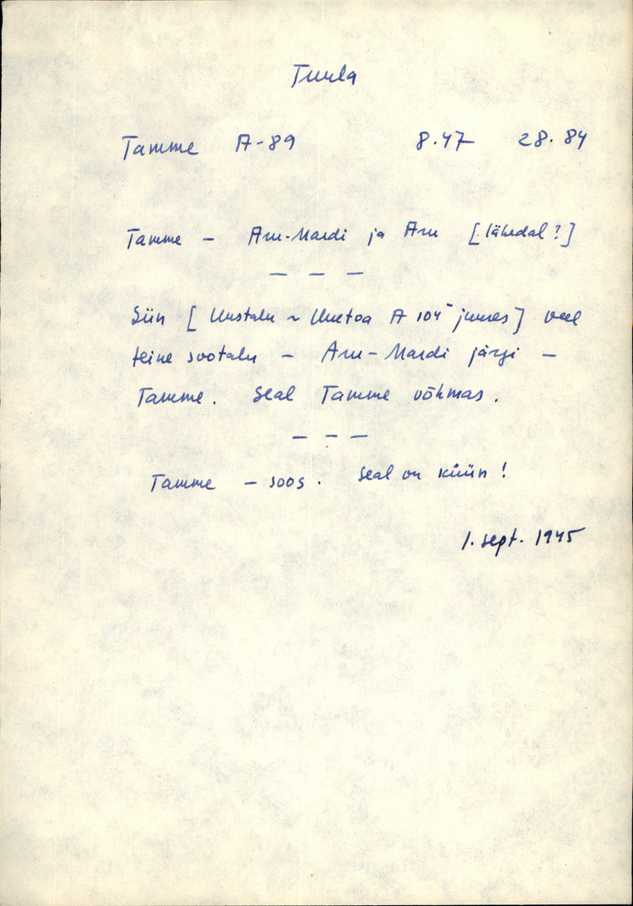 Tuula
Tamme A-89 8.47 28.84
Tamme - Aru-Mardi ja Aru [lähedal?]
— — —
Siin [Uustalu ~ Uuetoa A 104 juures] veel
teine sootalu - Aru-Mardi järgi -
Tamme. Seal Tamme võhmas.
— — —
Tamme - soos. Seal on küün!
1. sept. 1945